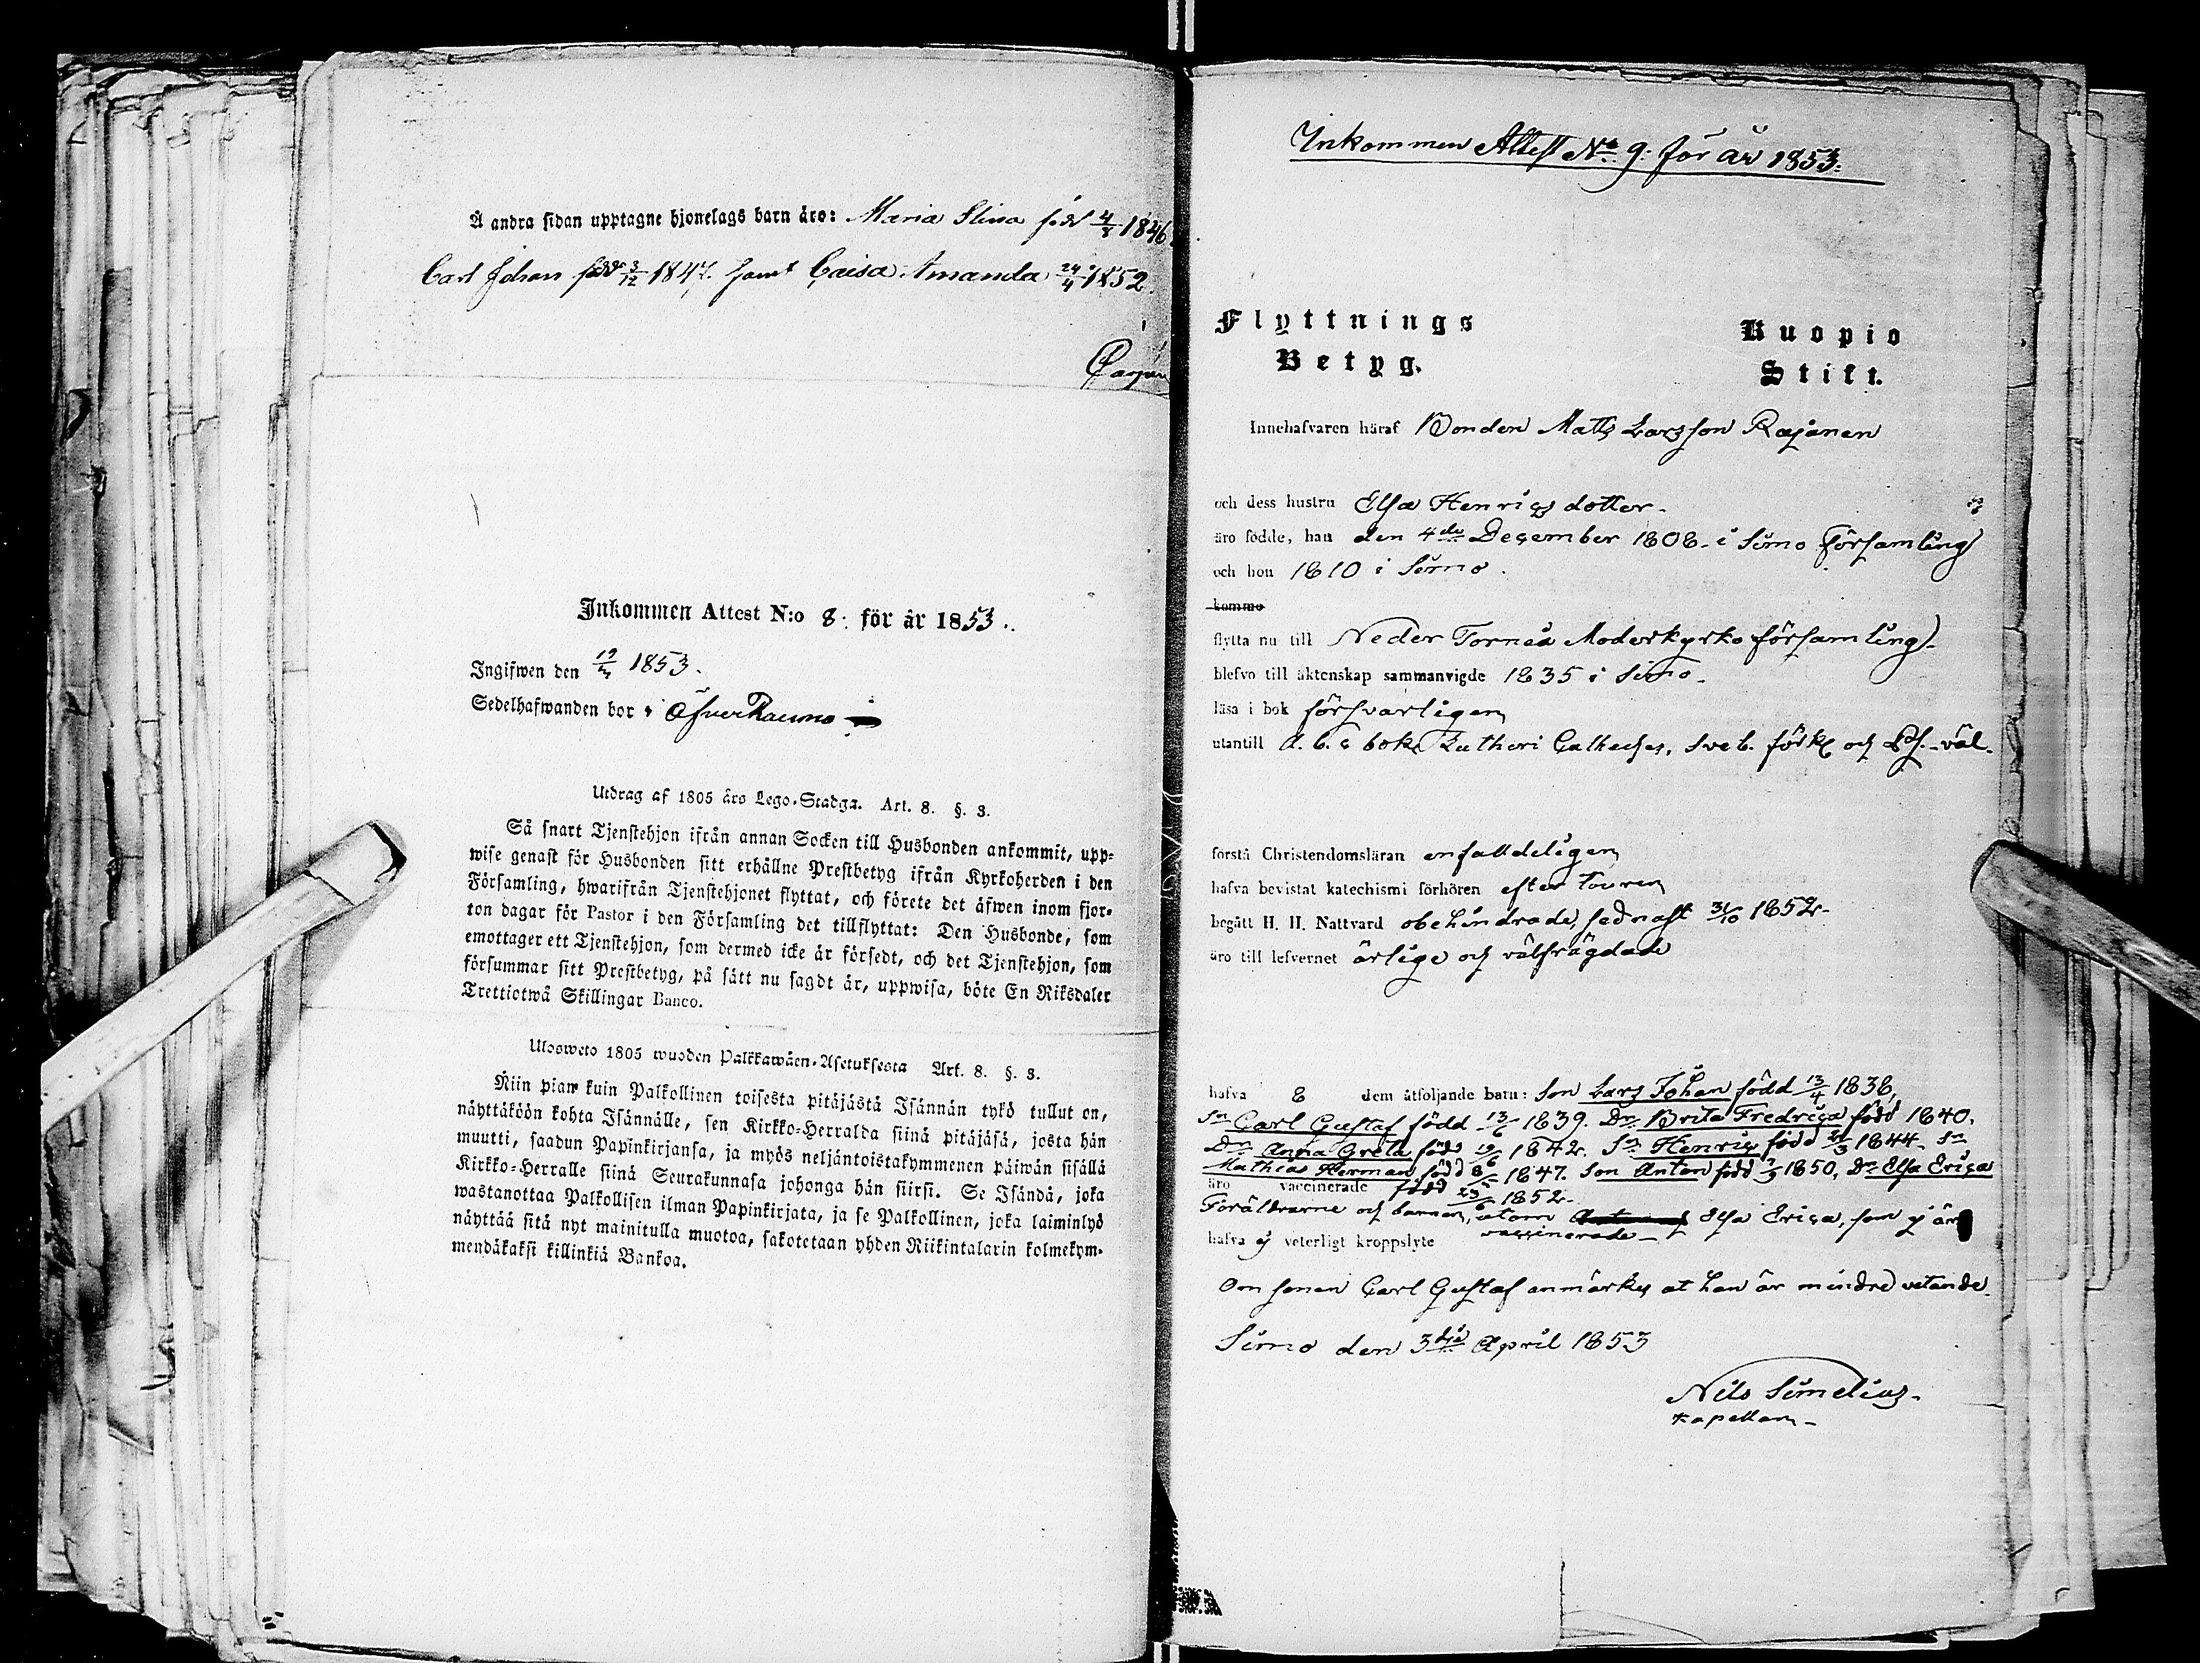 Å andra sidan upptagne hjonelags barn äro: Maria Stina född 4/8 1846.
Carl Johan född 3/12 1847. samt Caisa Amanda 24/4 1852.
Inkommen Attest N:o 8. för år 1853.
Ingifwen den 19/4 1853.
Sedelhafwanden bor i Öfver Raumo
Utdrag af 1805 års Lego-Stadga. Art. 8. §. 3.
Så snart Tjenstehjon ifrån annan Socken till Husbonden ankommit, upp-
wise genast för Husbonden sitt erhållne Prestbetyg ifrån Kyrkoherden i den
Församling, hwarifrån Tjenstehjonet flyttat, och förete det äfwen inom fjor-
ton dagar för Pastor i den Församling det tillflyttat: Den Husbonde, som
emottager ett Tjenstehjon, som dermed icke är försedt, och det Tjenstehjon, som
försummar sitt Prestbetyg, på sätt nu sagdt är, uppwisa, böte En Riksdaler
Trettiotwå Skillingar Banco.
Ulosweto 1805 wuoden Palkkawäen-Asetuksesta Art. 8. §. 3.
Niin pian kuin Palkollinen toisesta pitäjästä Isännän tykö tullut on,
näyttäköön kohta Isännälle, sen Kirkko-Herralda siinä pitäjäsä, josta hän
muutti, saadun Papinkirjansa, ja myös neljäntoistakymmenen päiwän sisällä
Kirkko-Herralle siinä Seurakunnasa johonga hän siirsi. Se Isändä, joka
wastanottaa Palkollisen ilman Papinkirjata, ja se Palkollinen, joka laiminlyö
näyttää sitä nyt mainitulla muotoa, sakotetaan yhden Riikintalarin kolmekym-
mendäkaksi killinkiä Bankoa.
Inkommen Attest No 9: för år 1853.
Flyttnings
Betyg.
Kuopio
Stift.
Innehafvaren häraf Bonden Matts Larsson Rajanen
och dess hustru Elsa Henricsdotter.
äro födde, han den 4de December 1808. i Simo Församling
och hon 1810 i Simo.
kommo
flytta nu till Neder Torneå Moderkyrko församling.
blefvo till äktenskap sammanvigde 1835 i Simo.
läsa i bok försvarligen
utantill a. b. c bok, Lutheri Catheches, Sveb. förkl och Ps. väl.
förstå Christendomsläran enfaldeligen
hafva bevistat katechismi förhören efter touren
begått H. H. Nattvard obehindrade, sednast 31/10 1852.
äro till lefvernet ärlige och välfrägdade
hafva 8 dem åtföljande barn: Son Lars Johan född 13/4 1838,
Sn Carl Gustaf född 13/6 1839. Dr Brita Fredrica född 1840.
Dr Anna Greta född 19/6 1842. Sn Henric född 21/3 1844. Sn
Mathias Herman född 8/5 1847. Son Anton född 7/3 1850, Dr Elsa Erica
äro vaccinerade född 23/6 1852.
Föräldrarne och barnen, utom Elsa Erica, som ej är
hafva ej veterligt kroppslyte vaccinerade
Om sonen Carl Gustaf anmärkes at han är mindre vetande.
Simo den 3dje April 1853
Nils Simelius.
Kapellan